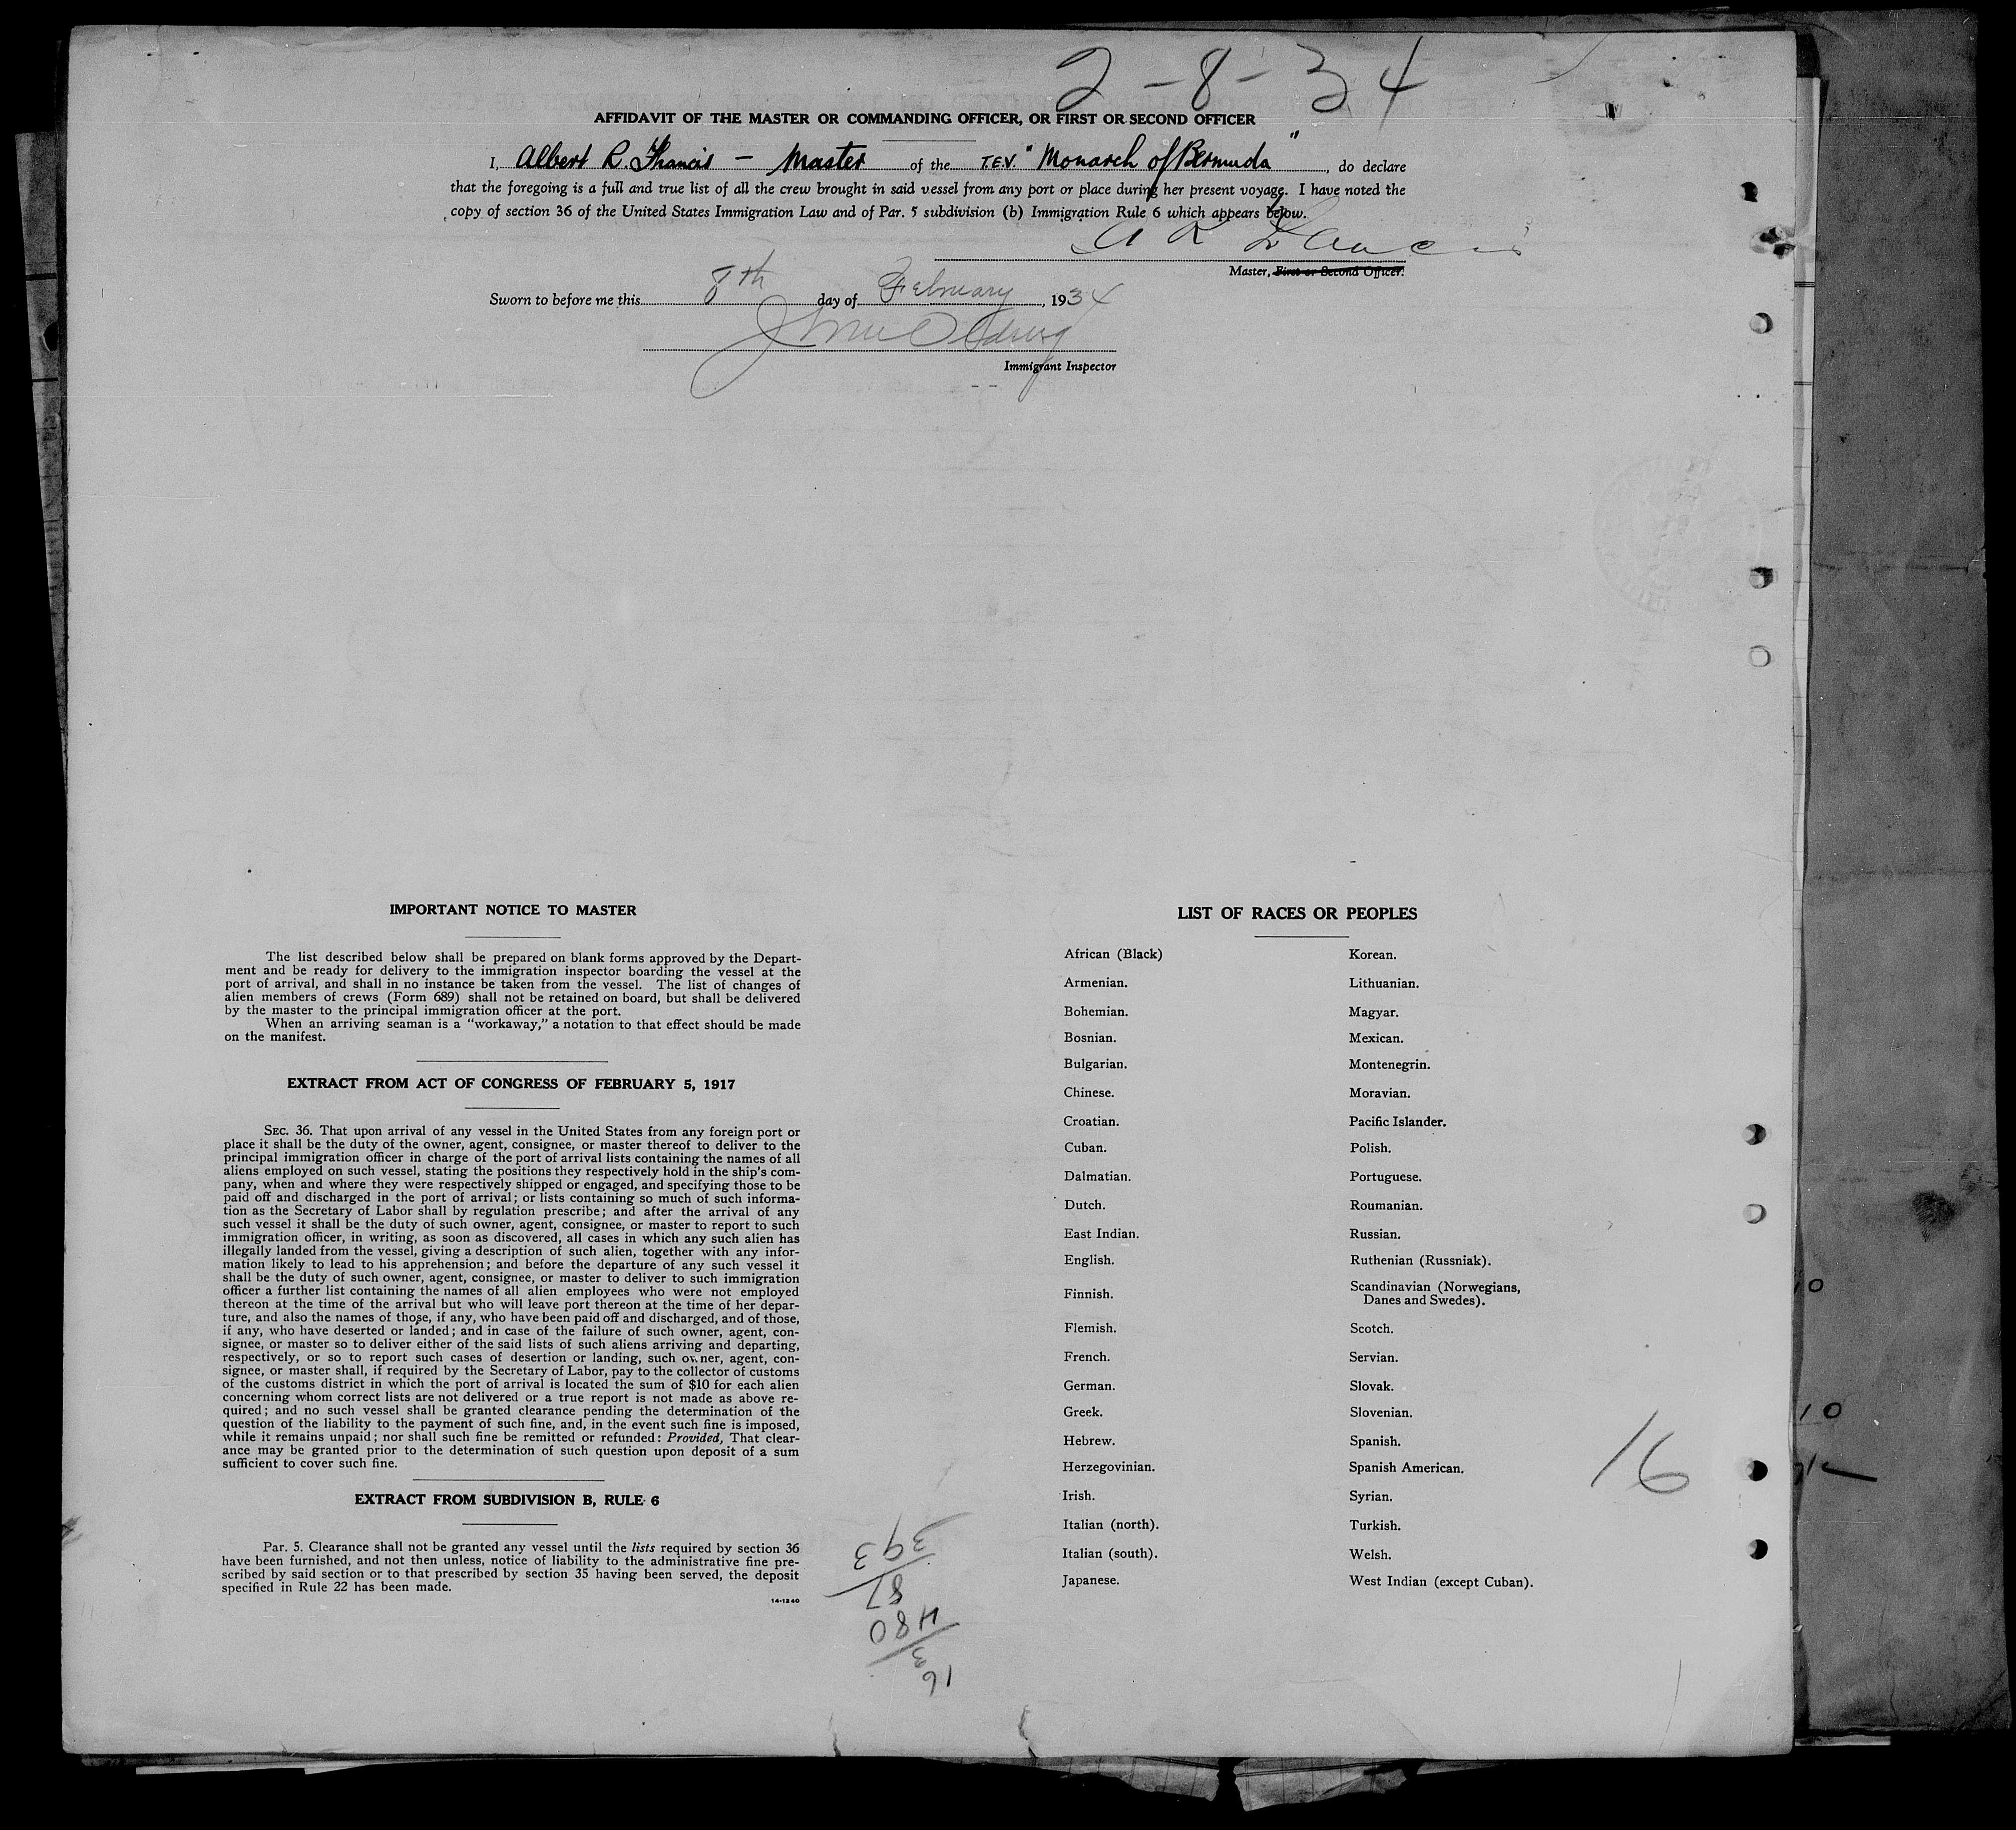 2-8-34
AFFIDAVIT OF THE MASTER OR COMMANDING OFFICER, OR FIRST OR SECOND OFFICER
I, Albert R. Francis - Master of the T.E.V. "Monarch of Bermuda", do declare
that the foregoing is a full and true list of all the crew brought in said vessel from any port or place during her present voyage. I have noted the
copy of section 36 of the United States Immigration Law and of Par. 5 subdivision (b) Immigration Rule 6 which appears below.
A R Francis
Master, First or Second Officer.
Sworn to before me this 8th day of February, 1934
Immigrant Inspector
IMPORTANT NOTICE TO MASTER
The list described below shall be prepared on blank forms approved by the Depart-
ment and be ready for delivery to the immigration inspector boarding the vessel at the
port of arrival, and shall in no instance be taken from the vessel. The list of changes of
alien members of crews (Form 689) shall not be retained on board, but shall be delivered
by the master to the principal immigration officer at the port.
When an arriving seaman is a "workaway," a notation to that effect should be made
on the manifest.
EXTRACT FROM ACT OF CONGRESS OF FEBRUARY 5, 1917
SEC. 36. That upon arrival of any vessel in the United States from any foreign port or
place it shall be the duty of the owner, agent, consignee, or master thereof to deliver to the
principal immigration officer in charge of the port of arrival lists containing the names of all
aliens employed on such vessel, stating the positions they respectively hold in the ship's com-
pany, when and where they were respectively shipped or engaged, and specifying those to be
paid off and discharged in the port of arrival; or lists containing so much of such informa-
tion as the Secretary of Labor shall by regulation prescribe; and after the arrival of any
such vessel it shall be the duty of such owner, agent, consignee, or master to report to such
immigration officer, in writing, as soon as discovered, all cases in which any such alien has
illegally landed from the vessel, giving a description of such alien, together with any infor-
mation likely to lead to his apprehension; and before the departure of any such vessel it
shall be the duty of such owner, agent, consignee, or master to deliver to such immigration
officer a further list containing the names of all alien employees who were not employed
thereon at the time of the arrival but who will leave port thereon at the time of her depar-
ture, and also the names of those, if any, who have been paid off and discharged, and of those,
if any, who have deserted or landed; and in case of the failure of such owner, agent, con-
signee, or master so to deliver either of the said lists of such aliens arriving and departing,
respectively, or so to report such cases of desertion or landing, such owner, agent, con-
signee, or master shall, if required by the Secretary of Labor, pay to the collector of customs
of the customs district in which the port of arrival is located the sum of $10 for each alien
concerning whom correct lists are not delivered or a true report is not made as above re-
quired; and no such vessel shall be granted clearance pending the determination of the
question of the liability to the payment of such fine, and, in the event such fine is imposed,
while it remains unpaid; nor shall such fine be remitted or refunded: Provided, That clear-
ance may be granted prior to the determination of such question upon deposit of a sum
sufficient to cover such fine.
EXTRACT FROM SUBDIVISION B, RULE 6
Par. 5. Clearance shall not be granted any vessel until the lists required by section 36
have been furnished, and not then unless, notice of liability to the administrative fine pre-
scribed by said section or to that prescribed by section 35 having been served, the deposit
specified in Rule 22 has been made.
14-1240
LIST OF RACES OR PEOPLES
African (Black)
Armenian.
Bohemian.
Bosnian.
Bulgarian.
Chinese.
Croatian.
Cuban.
Dalmatian.
Dutch.
East Indian.
English.
Finnish.
Flemish.
French.
German.
Greek.
Hebrew.
Herzegovinian.
Irish.
Italian (north).
Italian (south).
Japanese.
Korean.
Lithuanian.
Magyar.
Mexican.
Montenegrin.
Moravian.
Pacific Islander.
Polish.
Portuguese.
Roumanian.
Russian.
Ruthenian (Russniak).
Scandinavian (Norwegians,
Danes and Swedes).
Scotch.
Servian.
Slovak.
Slovenian.
Spanish.
Spanish American.
Syrian.
Turkish.
Welsh.
West Indian (except Cuban).
16
10
10